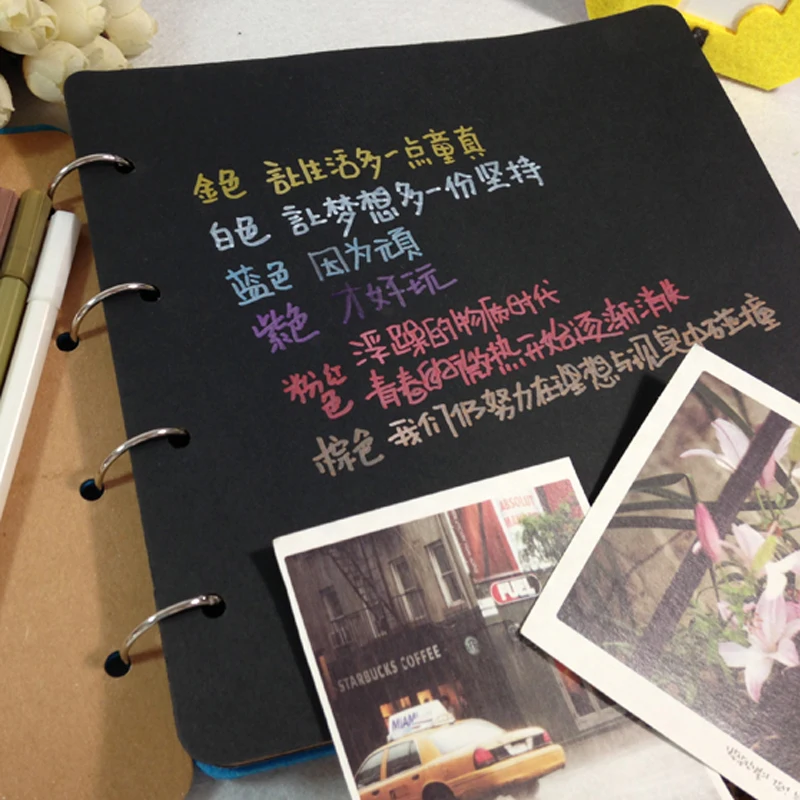 金色 讓生活多一点童真
白色 讓梦想多一份坚持
蓝色 因为頑
紫色 才好玩
浮躁的物质时代
粉红色 青春的微热开始逐渐消失
棕色 我们仍努力在理想与现实中碰撞
ABSOLUT
FUEL
STARBUCKS COFFEE
MIAMI